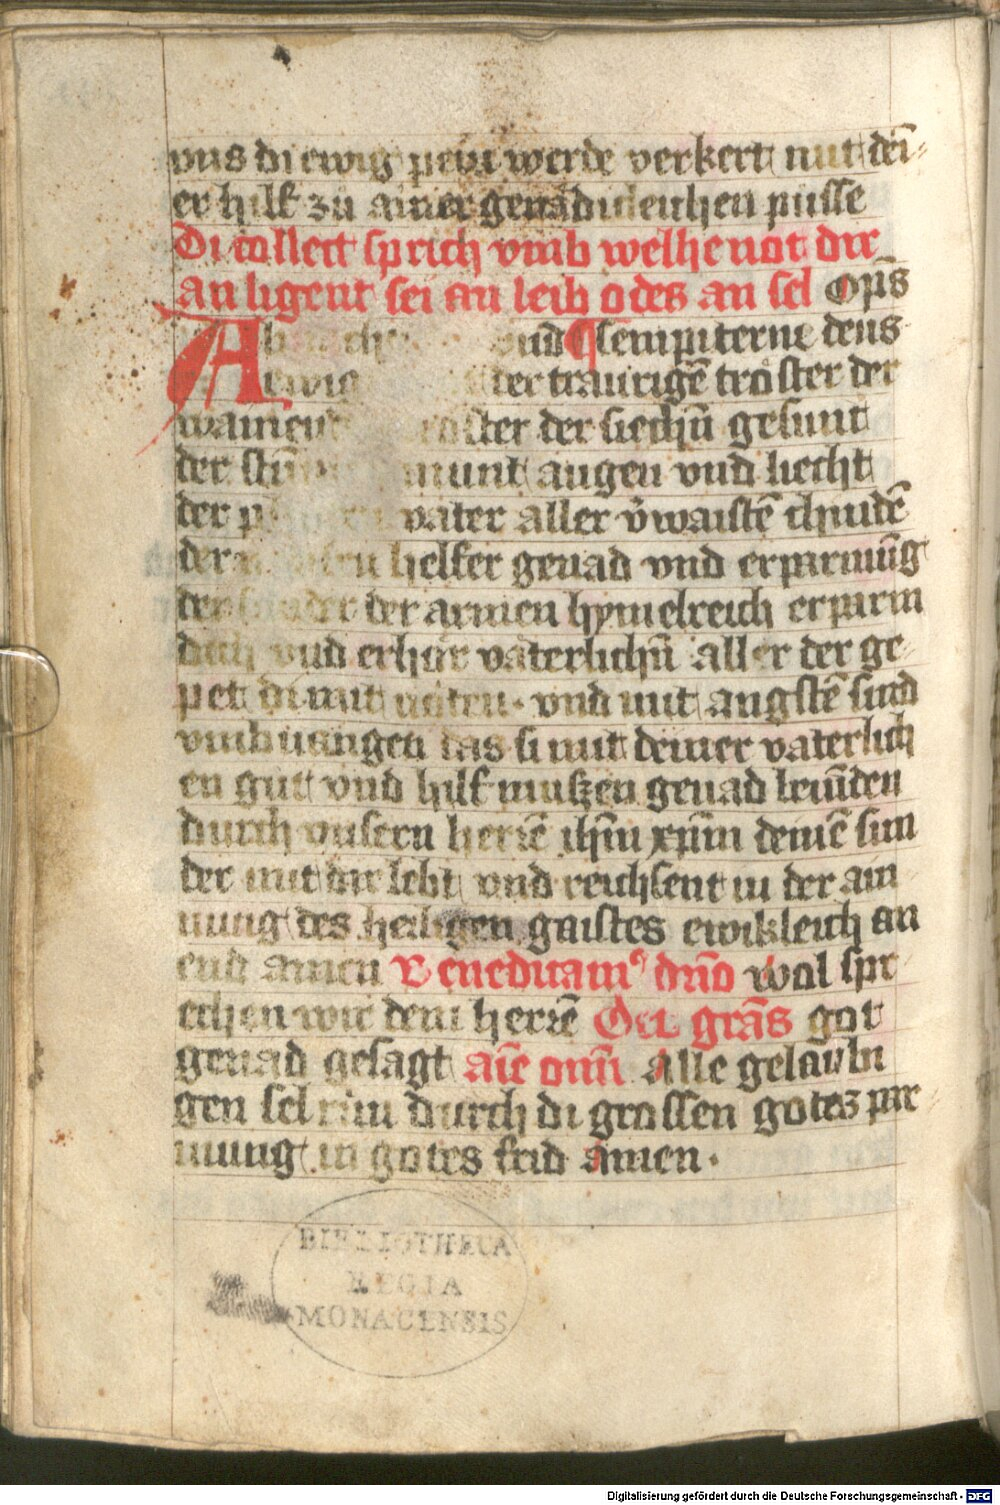 uns di ewig pein werde verkert mit dein̄
er hilf zu ainer genadichleichen pusse
Di collect sprich vmb welhe not dir
an ligent sei an leib odes an sel Op̄s
sempiterne deus
ewig der traurigē tröster der
wainent der siechn̄ gesunt
der munt augen vnd liecht
der vater aller v̄waistē chindē
der helfer genad vnd erparmūg
der sunder der armen hymelreich erparm
dich vnd erhör vaterlichn̄ aller der ge
pet di mit nöten · vnd mit angstē sind
vmbuangen das si mit deiner vaterlich
en güt vnd hilf muszen genad leuīden
durch vnsern herrē ihm̄ xp̄m deinē sun
der mit dir lebt vnd reichsent in der ain
nung des heiligen gaistes ewikleich an
end amen Benedicam⁹ dn̄o wol spr
echen wir dem herrē Deo gr̄as got
genad gesagt aīe om̄i Alle gelaubi
gen sel rūn durch di grossen gotes par
mung in gotes frid amen ·
BIBLIOTHECA
REGIA
MONACENSIS
Digitalisierung gefördert durch die Deutsche Forschungsgemeinschaft - DFG